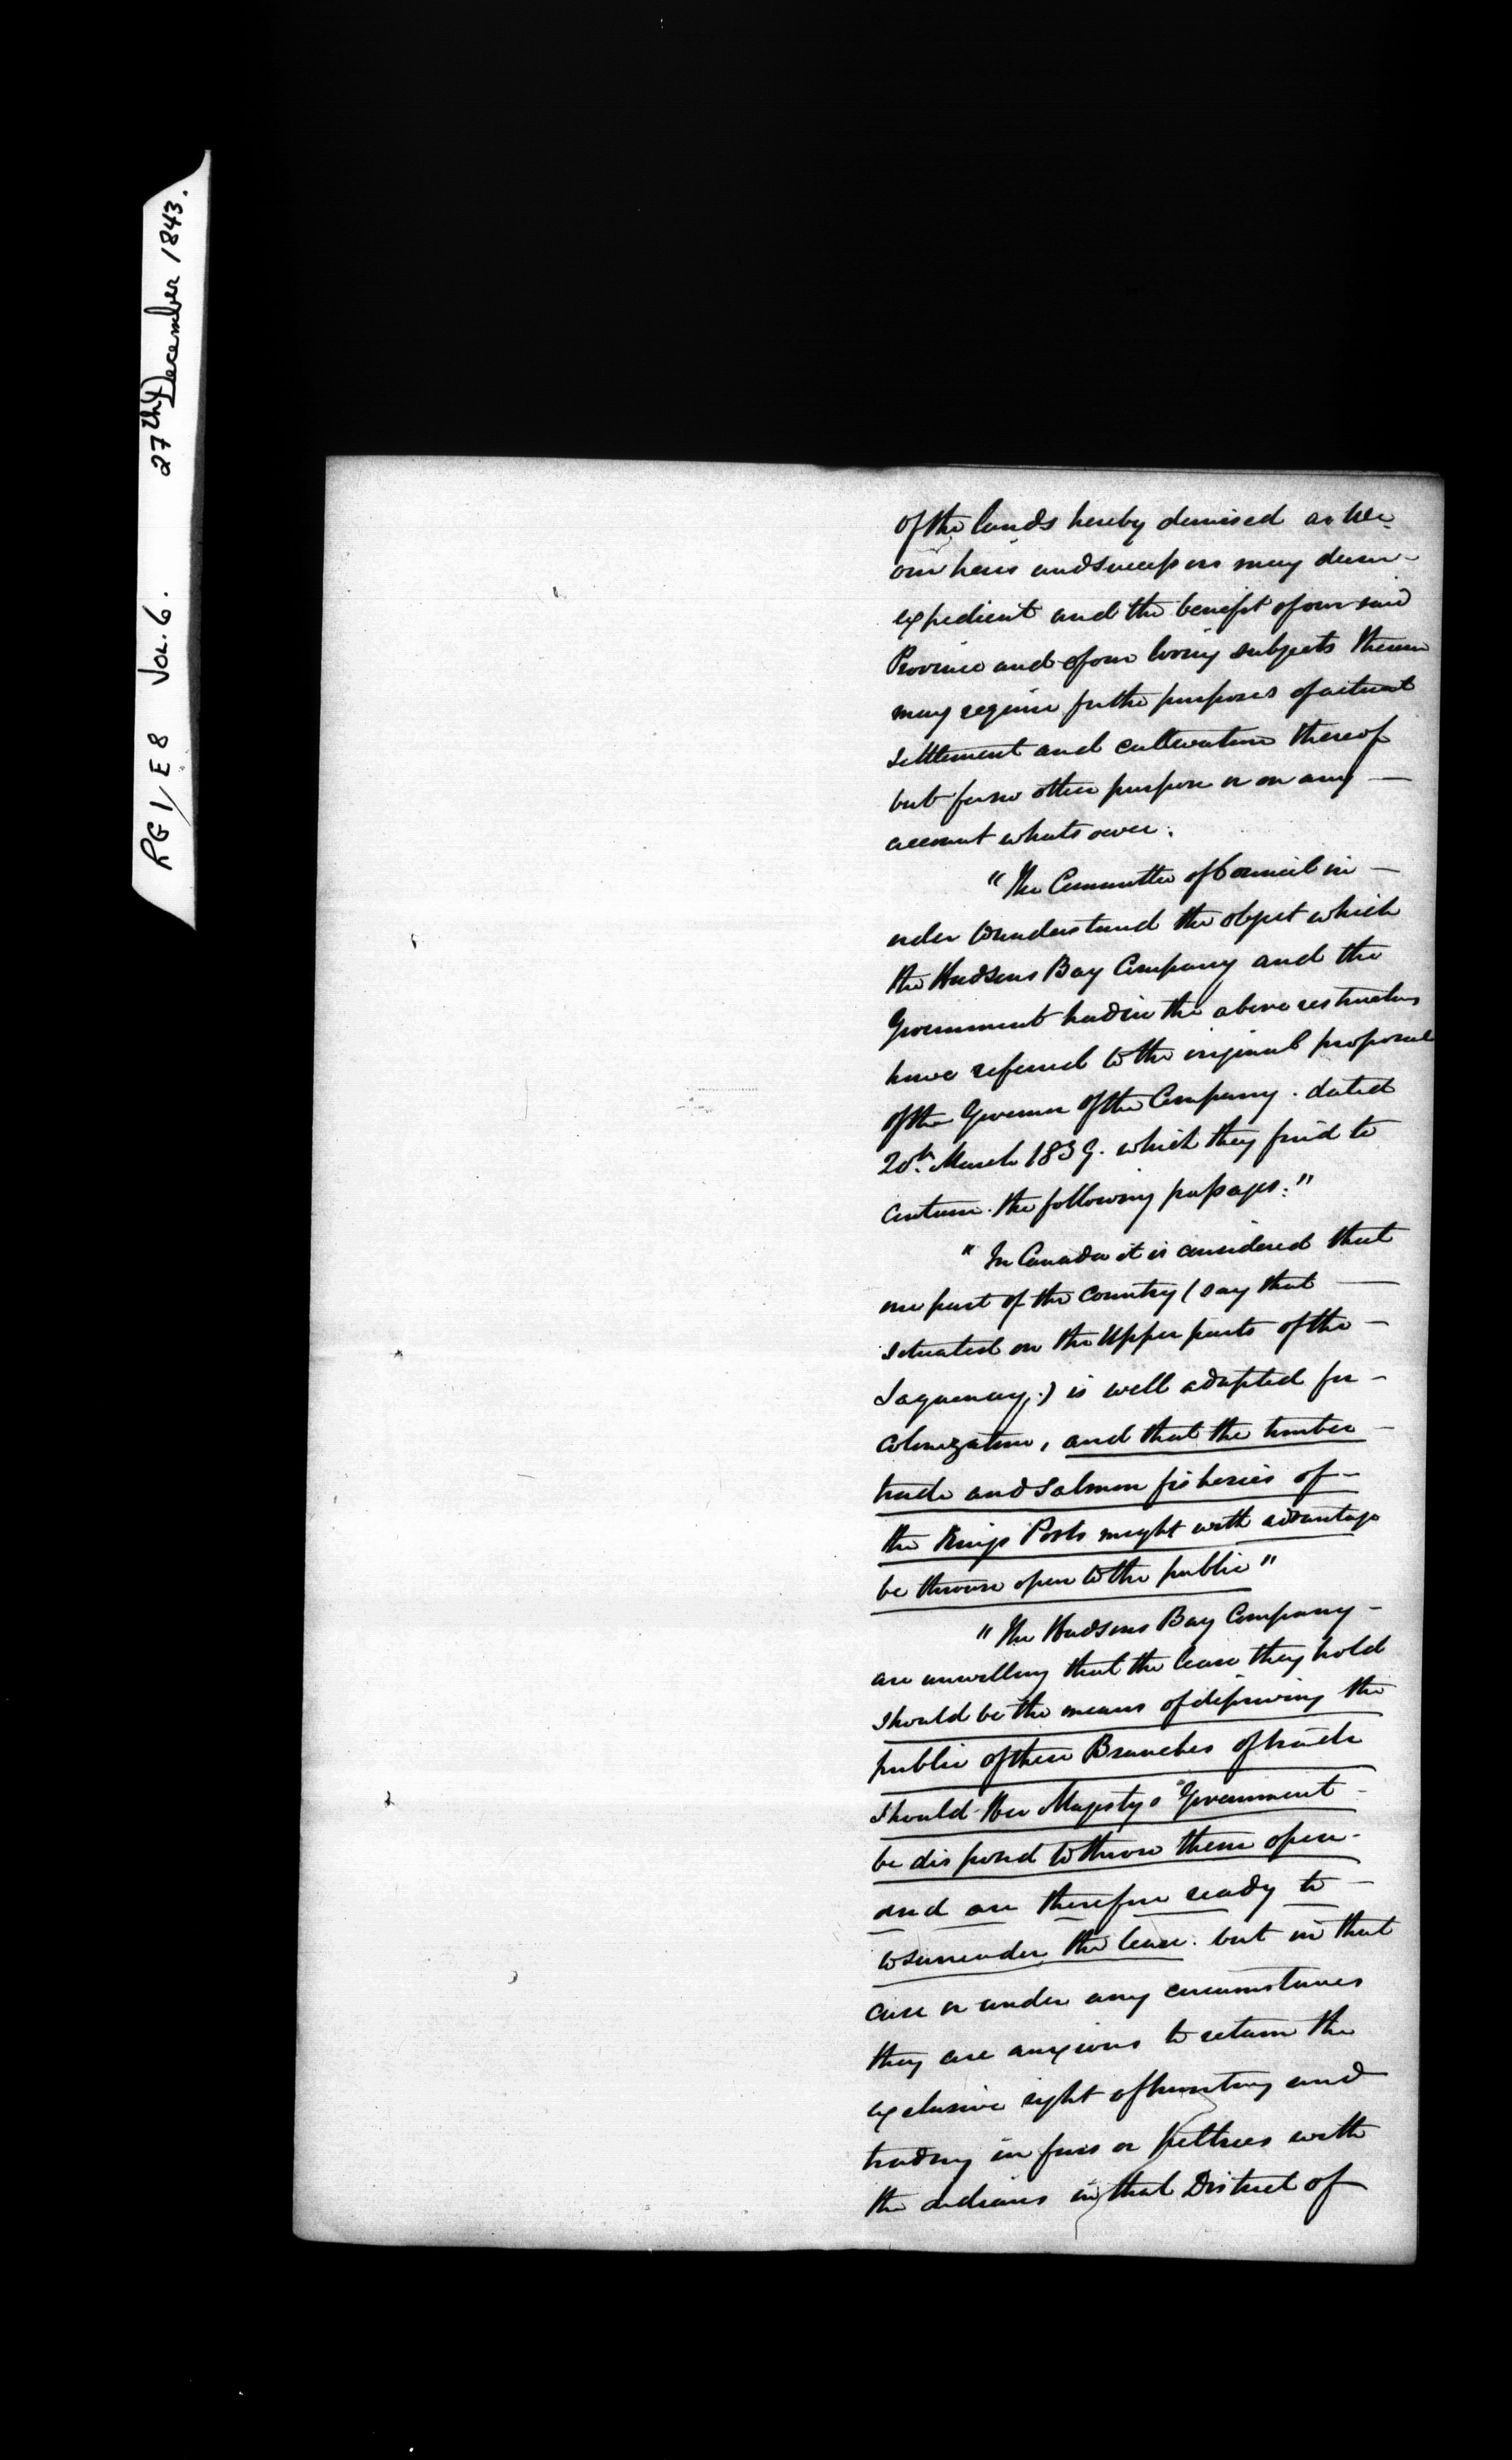 RG 1/E 8 Vol. 6. 27th December 1843.
of the lands hereby demised as We
our heirs and successors may deem
expedient and the benefit of our said
Province and of our loving subjects therein
may require for the purposes of actual
settlement and cultivation thereof
but for no other purpose or on any —
account whatsoever.
"The Committee of Council in —
order to understand the object which
the Hudsons Bay Company and the
Government had in the above restrictions
have referred to the original proposal
of the Governor of the Company. dated
20th March 1839. which they find to
contain. the following passages:"
"In Canada it is considered that
one part of the Country (say that —
situated on the Upper parts of the —
Saguenay.) is well adapted for —
colonization, and that the timber —
trade and Salmon fisheries of —
the Kings Posts might with advantage
be thrown open to the public"
"The Hudsons Bay Company —
are unwilling that the lease they hold
should be the means of depriving the
public of these Branches of trade
should Her Majestys Government —
be disposed to throw them open —
and are therefore ready to —
to surrender the lease. but in that
case or under any circumstances
they are anxious to retain the
exclusive right of hunting and
trading in furs or peltries with
the Indians in that District of